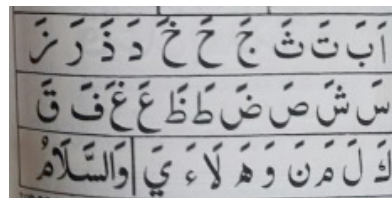 اَ بَ تَ ثَ جَ حَ خَ دَ ذَ رَ زَ
سَ شَ صَ ضَ طَ ظَ عَ غَ فَ قَ
كَ لَ مَ نَ وَ هَ لَا ءَ يَ وَالسَّلَامُ